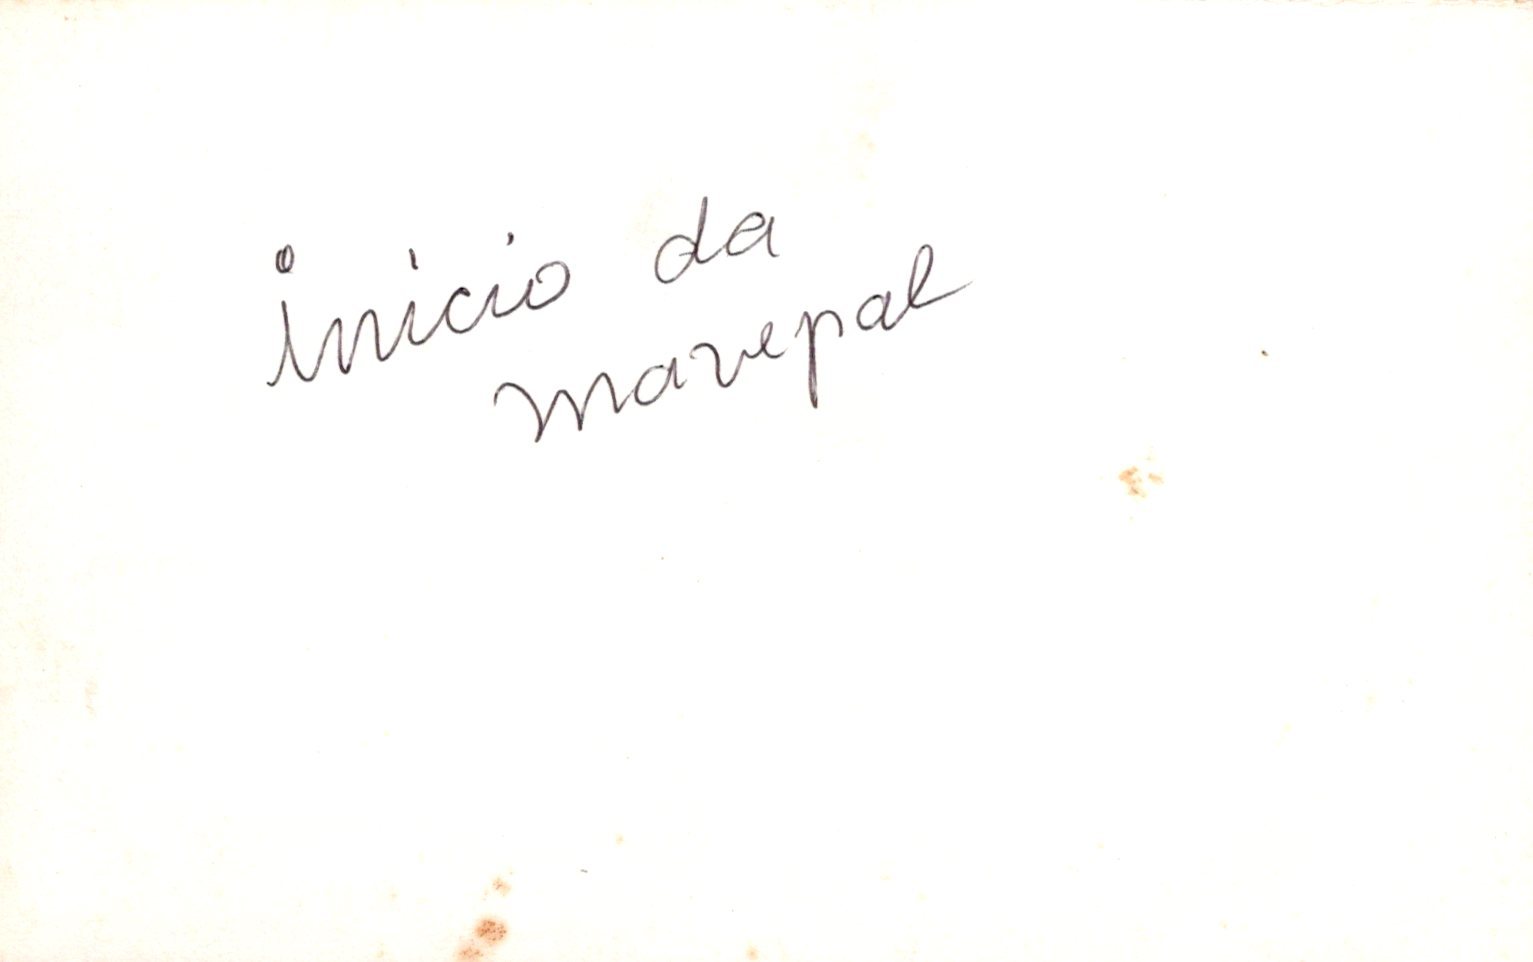 inicio da
mavepal